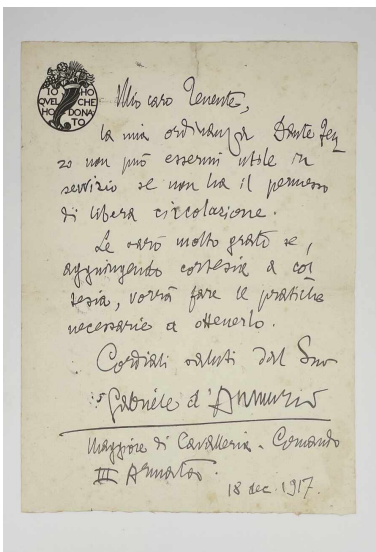 IO HO
QUEL CHE
HO DONA
TO
Mio caro Tenente,
la mia ordinanza Dante Fen
zo non può essermi utile in
servizio se non ha il permesso
di libera circolazione.
Le sarò molto grato se,
aggiungendo cortesia a cor
tesia, vorrà fare le pratiche
necessarie a ottenerlo.
Cordiali saluti dal Suo
Gabriele d'Annunzio
Maggiore di Cavalleria - Comando
III Armata.
18 dec. 1917.